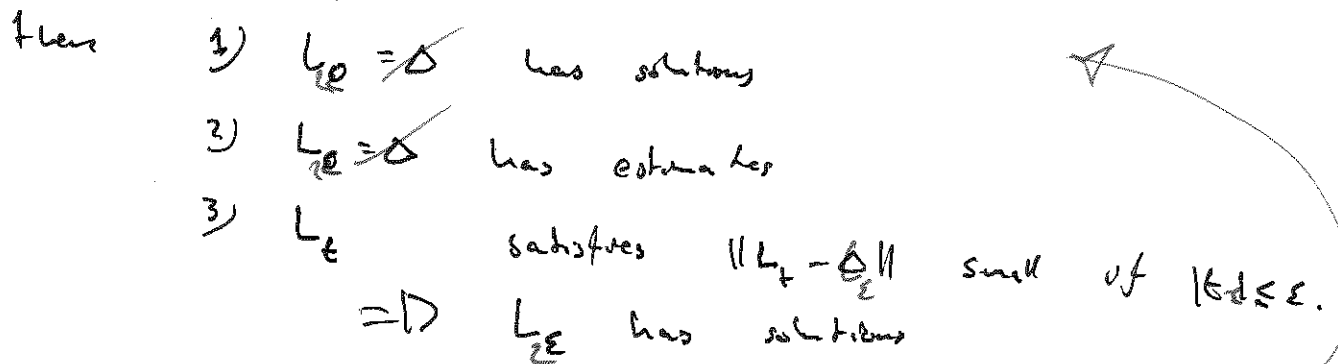 then 1) L_{2ε} = Δ has solutions
2) L_{2ε} = Δ has estimates
3) L_t satisfies ||L_t - Δ_ε|| small if |t| ≤ ε.
⇒ L_{2ε} has solutions